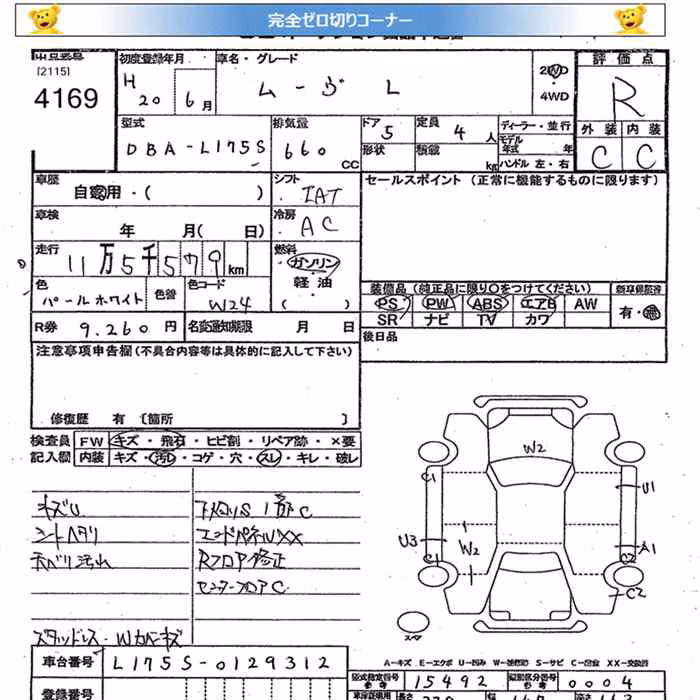 完全ゼロ切りコーナー
[2115]
4169
初度登録年月
H 20 6月
車名・グレード
ムーヴ L
2WD
・
4WD
評価点
R
外装 内装
C C
型式
DBA-L175S
排気量
660 CC
ドア 5
形状
定員 4人
積載 kg
ディーラー・並行
モデル年式 年
ハンドル 左・右
車歴
自家用・( )
シフト
IAT
セールスポイント (正常に機能するものに限ります)
車検
年 月( 日)
冷房
AC
走行
11万5千579km
燃料
ガソリン
・軽油
・( )
色
パールホワイト
色替
色コード
W24
装備品 (純正品に限り○をつけてください)
PS PW ABS エアB AW
SR ナビ TV カワ
新車保証書
有・無
R券 9.260円
名変通知期限 月 日
後日品
注意事項申告欄(不具合内容等は具体的に記入して下さい)
修復歴 有 〔箇所 〕
検査員記入欄
FW キズ・飛石・ヒビ割・リペア跡・×要
内装 キズ・汚レ・コゲ・穴・スレ・キレ・破レ
キズU
シートヘタリ
天ベリ汚れ
スタッドレス・Wカバーキズ
下廻りS1部C
エンドパネルXX
Rフロア修正
センターフロアC
W2
C1
U1
U3
C1
W2
A1
C2
C2
スペア
A-キズ E-エクボ U-凹み W-補修跡 S-サビ C-腐食 XX-交換済
車台番号 L175S-0129312
型式指定番号 15492
類別区分番号 0004
登録番号
長さ